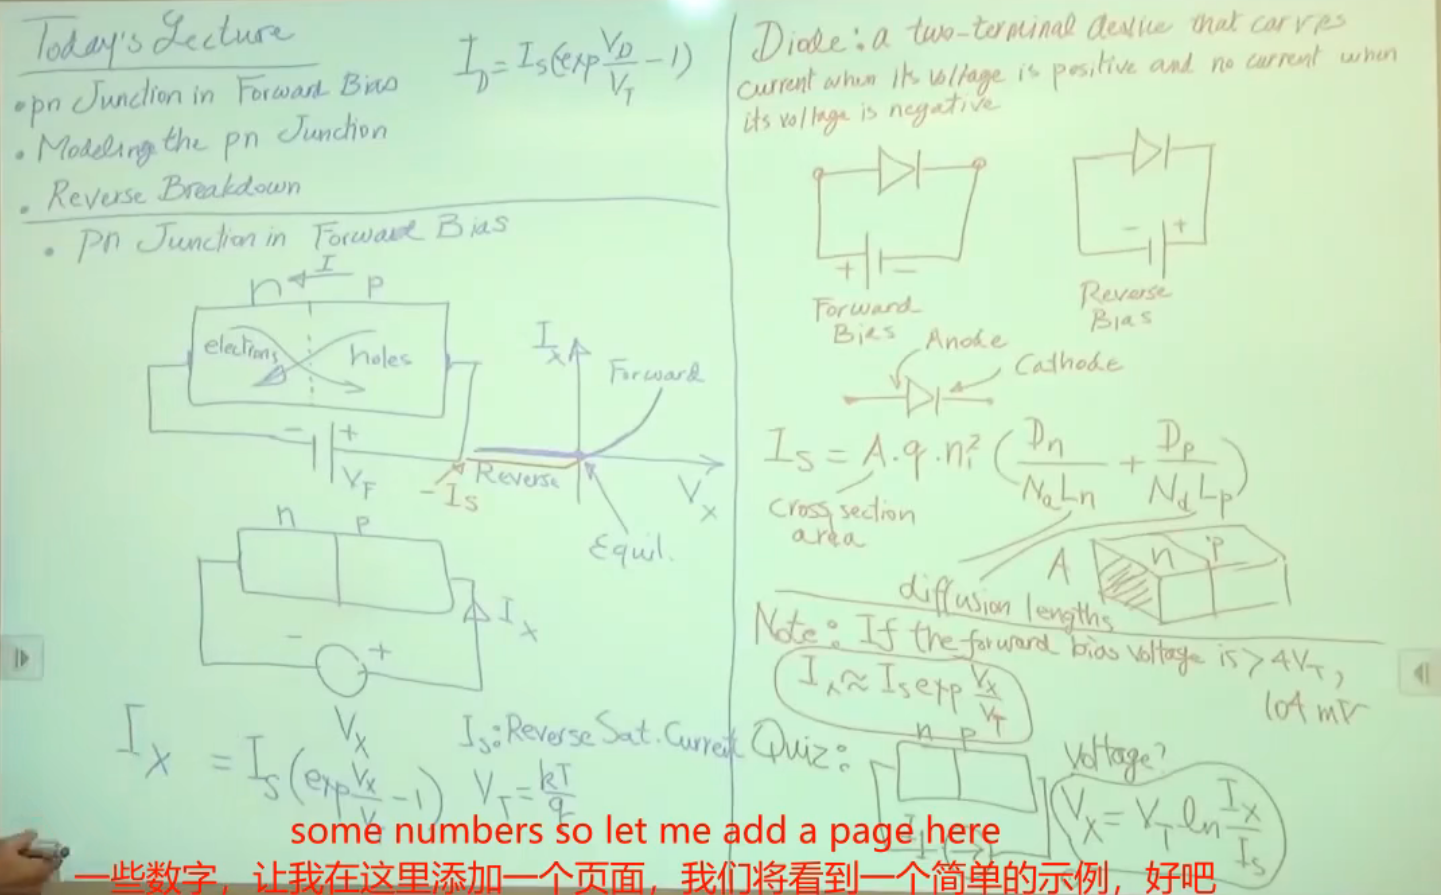 Today's Lecture
• pn Junction in Forward Bias
• Modeling the pn Junction
• Reverse Breakdown
I_D = I_S(exp V_D/V_T − 1)
• Pn Junction in Forward Bias
I
n p
electrons holes
− +
V_F
I_X
Forward
Reverse
−I_S
V_X
Equil.
n p
I_X
− +
V_X
I_X = I_S(exp V_X/V − 1)
I_S: Reverse Sat. Current
V_T = kT/q
Diode: a two-terminal device that carries
current when its voltage is positive and no current when
its voltage is negative
+ −
Forward
Bias
− +
Reverse
Bias
Anode
Cathode
I_S = A·q·n_i² (D_n/(N_a L_n) + D_p/(N_d L_p))
Cross section
area
diffusion lengths
A n p
Note: If the forward bias voltage is > 4V_T,
104 mV
I_X ≈ I_S exp V_X/V_T
Quiz:
n p
Voltage?
V_X = V_T ln I_X/I_S
some numbers so let me add a page here
一些数字，让我在这里添加一个页面，我们将看到一个简单的示例，好吧